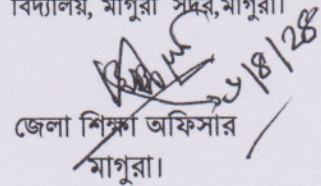 বিদ্যালয়, মাগুরা সদর, মাগুরা।
জেলা শিক্ষা অফিসার
মাগুরা।